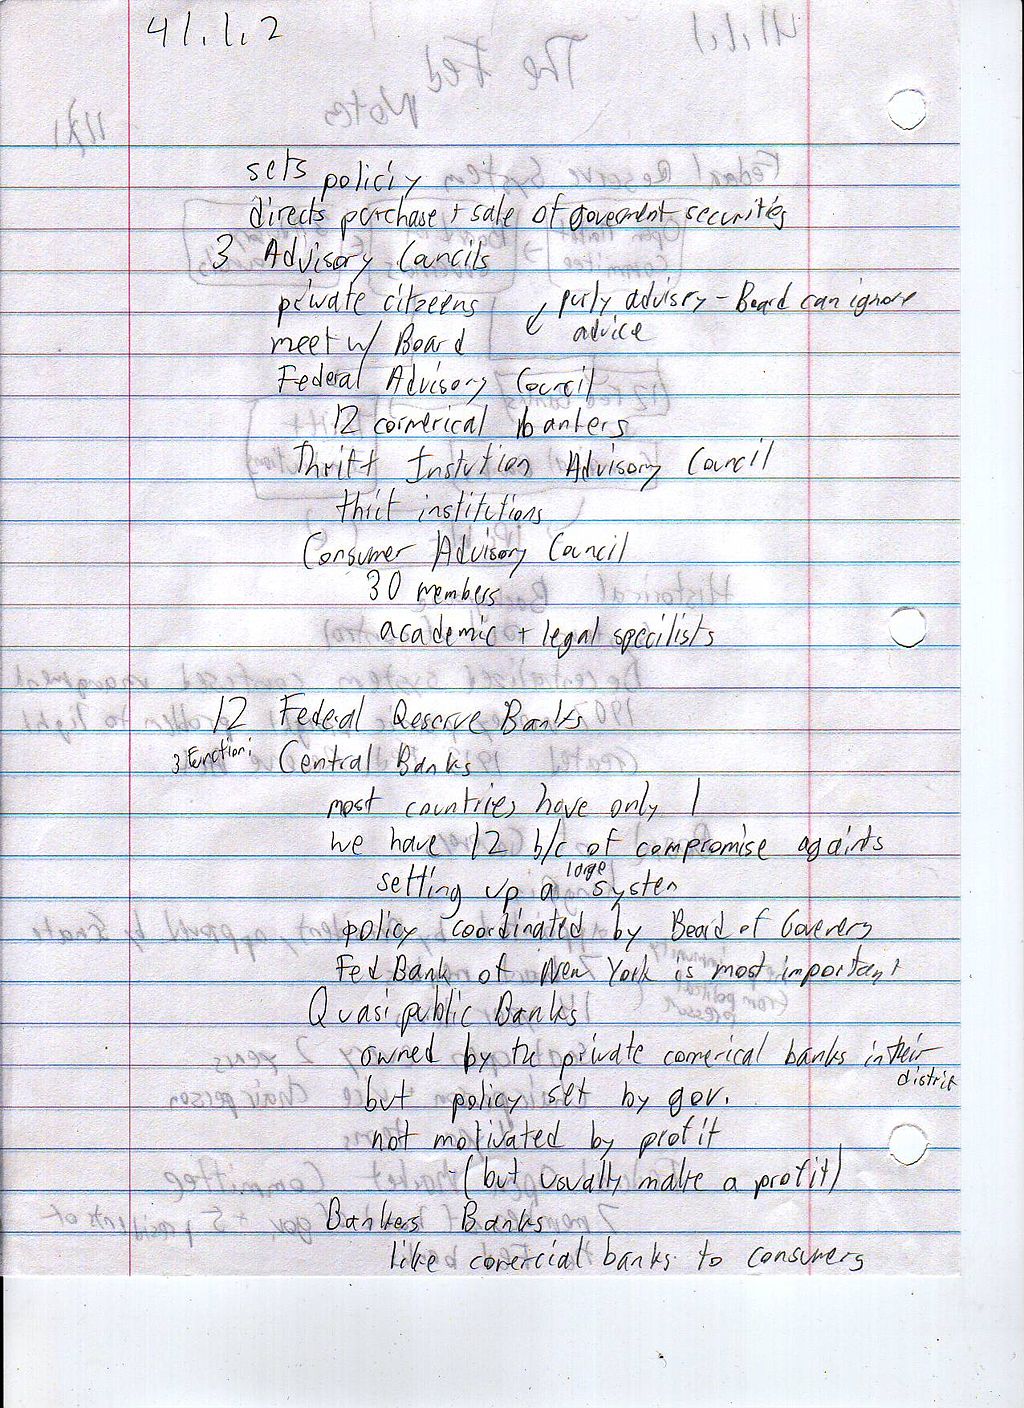 41.1.2
sets policiy
directs purchase + sale of goverment securities
3 Advisory Councils
private citzeens
purly advisry - Board can ignore
advice
meet w/ Board
Federal Advisory Council
12 comerical banters
Thrift Instution Advisory Council
thrit institutions
Consumer Advisory Council
30 members
academic + legal specilists
12 Federal Reserve Banks
3 Function: Central Banks
most countries have only 1
we have 12 b/c of compromise againts
setting up a large system
policy coordinated by Board of Goverers
Fed Bank of New York is most important
Quasi public Banks
owned by the private comerical banks in their
district
but policy set by gov.
not motivated by profit
- (but usually make a profit)
Bankers Banks
like comercial banks to consumers